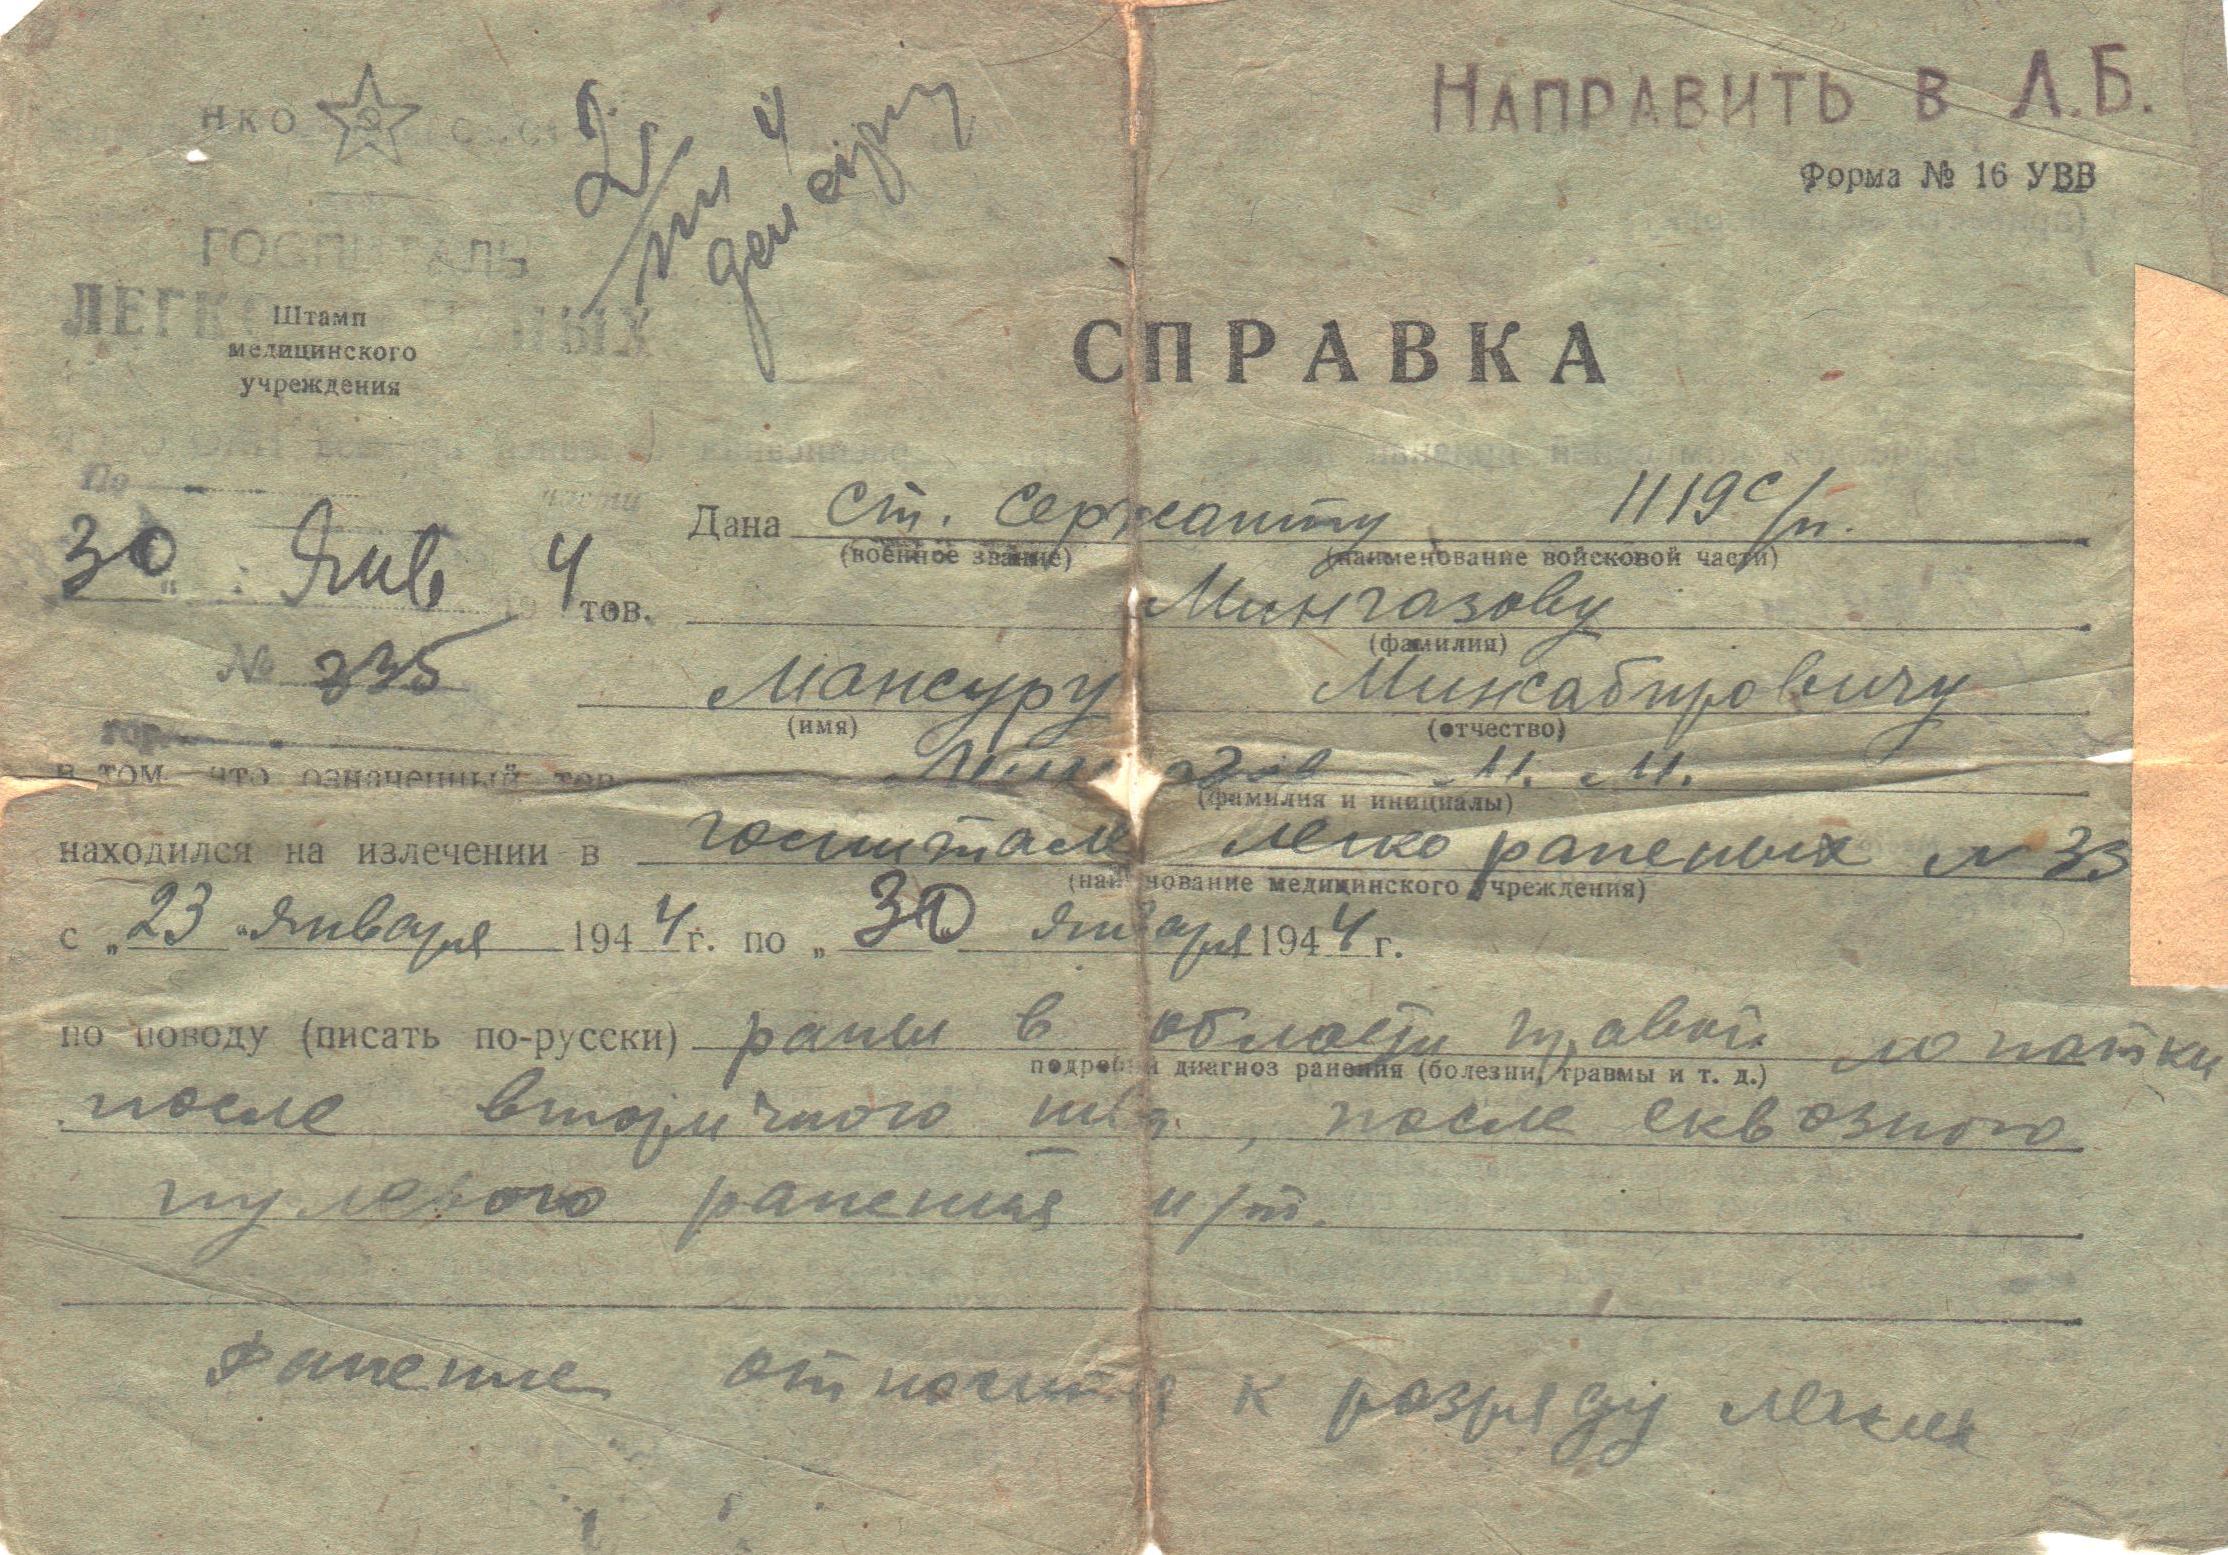 НКО СССР
НАПРАВИТЬ В Л.Б.
Форма № 16 УВВ
ГОСПИТАЛЬ
Штамп
медицинского
учреждения
СПРАВКА
По части
Дана ст. сержанту 1119 с/п.
(военное звание) (наименование войсковой части)
30 " Янв 4
тов. Мингазову
(фамилия)
№ 235
Мансуру Минсабировичу
(имя) (отчество)
гор.
в том, что означенный тов. Мингазов М. М.
(фамилия и инициалы)
находился на излечении в госпитале легко раненых N 33
(наименование медицинского учреждения)
с „23 " января 1944 г. по „30 января 1944 г.
по поводу (писать по-русски) раны в области правой лопатки
подробный диагноз ранения (болезни, травмы и т. д.)
после вторичного шва, после сквозного
пулевого ранения м/т.
Ранение относится к разряду легких